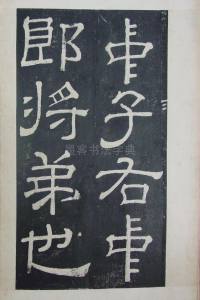 中子右中
郎将弟也